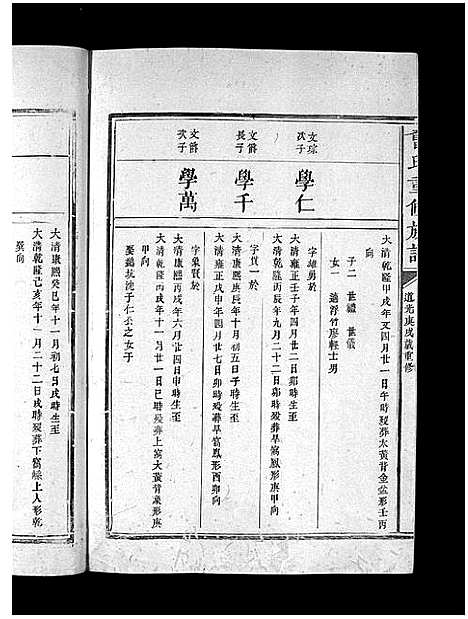 氏重修族譜
道光庚戌歲重修
大清乾隆甲戌年又四月廿一日午時歿葬太黃背金盆形壬丙
向
子二 世禮 世儀
女一 適浮竹廖輕士男
文琮
次子
學仁
字雄勇於
大清雍正壬子年四月廿二日卯時生至
大清乾隆丙辰年九月二十二日卯時歿葬旱窩鳳形庚甲向
文爵
長子
學千
字貫一於
大清康熙庚辰年十月初五日子時生至
大清雍正甲寅年四月廿七日卯時歿葬旱窩鳳形酉卯向
文爵
次子
學萬
字象賢於
大清康熙丙戌年六月廿四日申時生至
大清乾隆丙戌年十一月廿一日巳時歿葬上窩大黃背象形庚
甲向
娶鵝坑沈子仁公之女于
大清康熙癸巳年十一月初七日戌時生至
大清乾隆己亥年十一月二十二日戌時歿葬下窩綠上人形乾
巽向